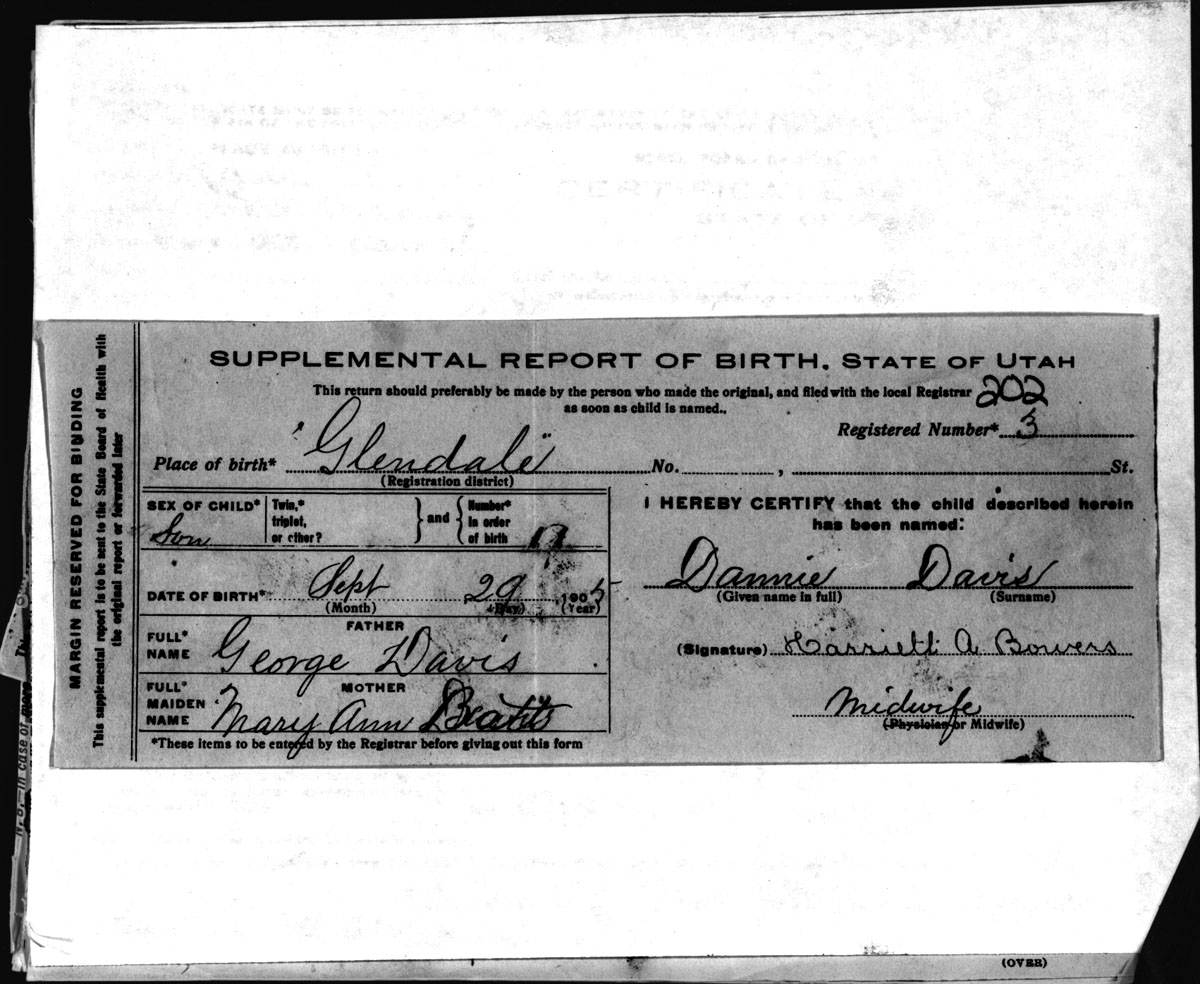 SUPPLEMENTAL REPORT OF BIRTH. STATE OF UTAH
This return should preferably be made by the person who made the original, and filed with the local Registrar
as soon as child is named.
202
Registered Number* 3
Place of birth* Glendale No. , St.
(Registration district)
SEX OF CHILD* Son
Twin,* triplet, or other?
and
Number* in order of birth
DATE OF BIRTH* Sept 29 1905
(Month) (Day) (Year)
FATHER
FULL* NAME George Davis
MOTHER
FULL* MAIDEN NAME Mary Ann
*These items to be entered by the Registrar before giving out this form
I HEREBY CERTIFY that the child described herein
has been named:
Dannie Davis
(Given name in full) (Surname)
(Signature) Harriett A Bowers
Midwife
(Physician or Midwife)
MARGIN RESERVED FOR BINDING
This supplemental report is to be sent to the State Board of Health with
the original report or forwarded later
N. B.—In case of more
(OVER)